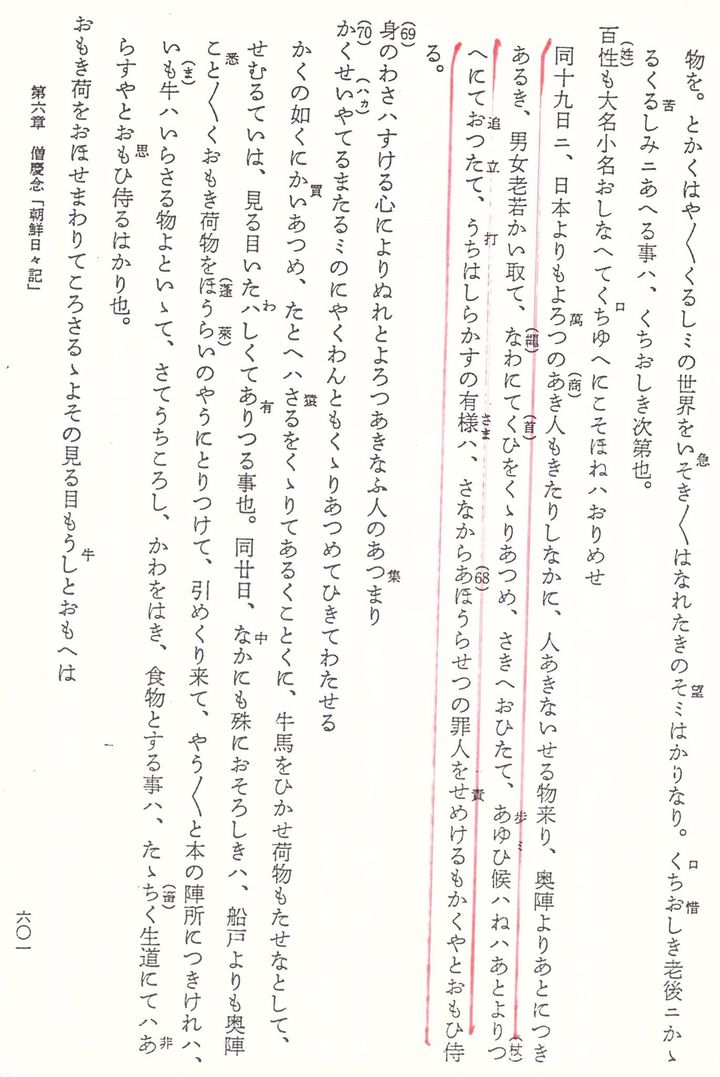 物を。とかくはや〱くるしミの世界をいそき〱はなれたきのそミはかりなり。くちおしき老後ニかゝ
るくるしみニあへる事ハ、くちおしき次第也。
百性も大名小名おしなへてくちゆへにこそほねハおりめせ
同十九日ニ、日本よりもよろつのあき人もきたりしなかに、人あきないせる物来り、奥陣よりあとにつき
あるき、男女老若かい取て、なわにてくひをくゝりあつめ、さきへおひたて、あゆひ候ハねハあとよりつ
へにておつたて、うちはしらかすの有様ハ、さなからあほうらせつの罪人をせめけるもかくやとおもひ侍
る。
身のわさハすける心によりぬれとよろつあきなふ人のあつまり
かくせいやてるまたるミのにやくわんともくゝりあつめてひきてわたせる
かくの如くにかいあつめ、たとへハさるをくゝりてあるくことくに、牛馬をひかせ荷物もたせなとして、
せむるていは、見る目いたハしくてありつる事也。同廿日、なかにも殊におそろしきハ、船戸よりも奥陣
こと〱くおもき荷物をほうらいのやうにとりつけて、引めくり来て、やう〱と本の陣所につきけれハ、
いも牛ハいらさる物よといゝて、さてうちころし、かわをはき、食物とする事ハ、たゝちく生道にてハあ
らすやとおもひ侍るはかり也。
おもき荷をおほせまわりてころさるゝよその見る目もうしとおもへは
第六章 僧慶念「朝鮮日々記」
六〇一
急
望
口
惜
苦
(姓)
口
萬
(商)
(縄)
(首)
歩ミ
(杖)
追
立
打
さま
(68)
責
(69)
集
(70)
(ハカ)
買
猿
わ
有
中
悉
(蓬
萊)
(ま)
(畜)
非
思
牛